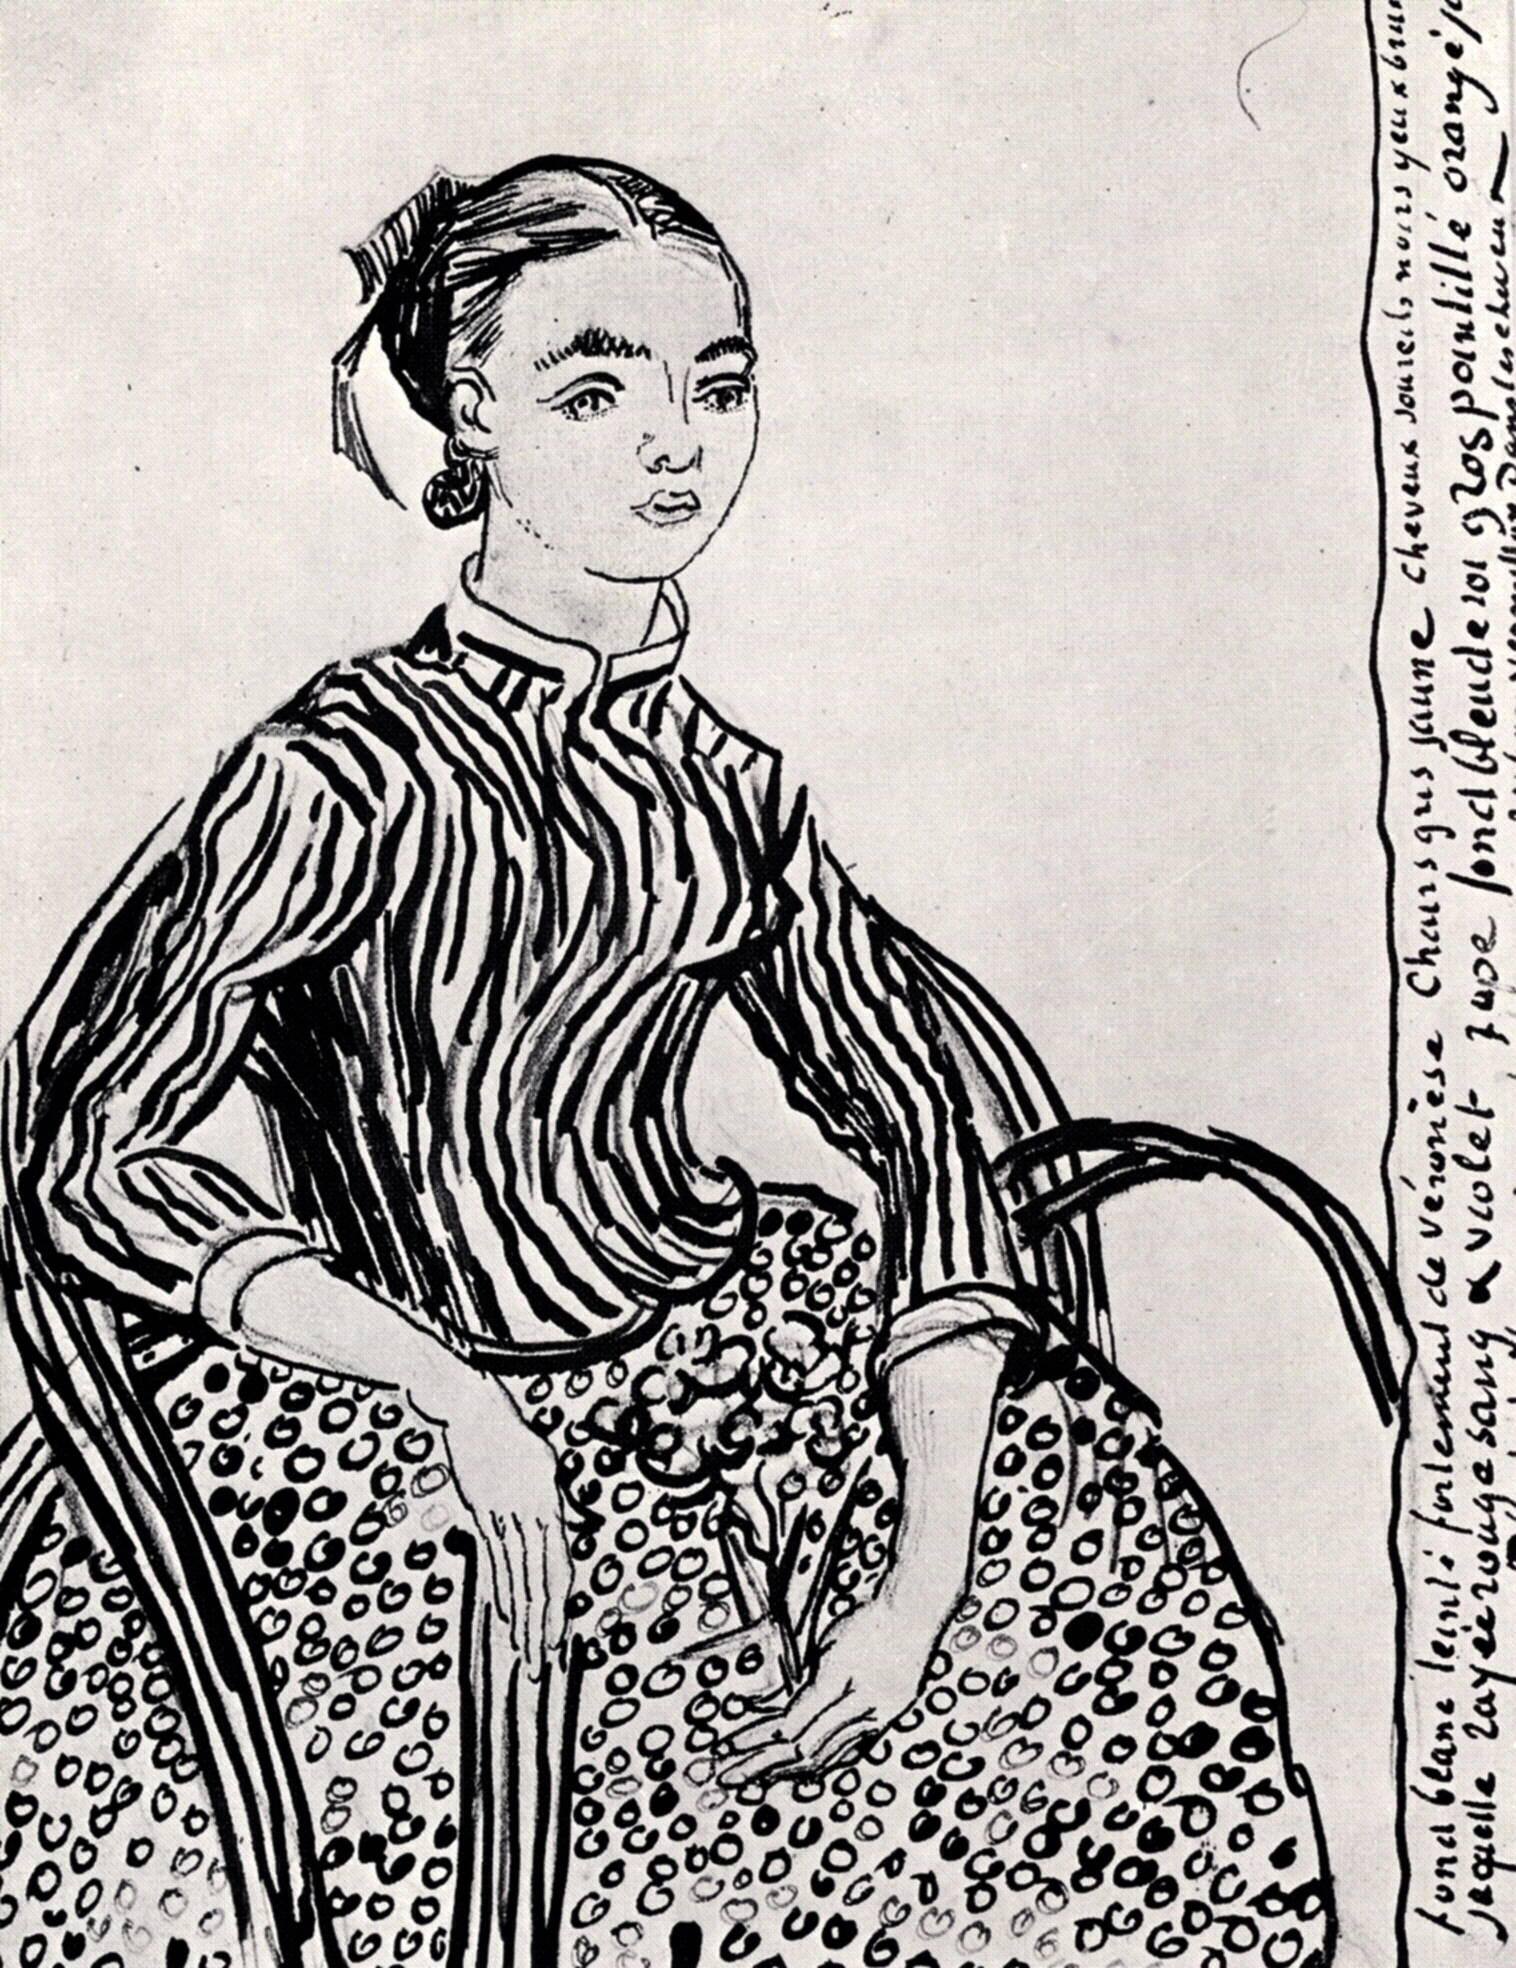 fond blanc teinté fortement de véronèse Chairs gris jaune cheveux sourcils noirs yeux brun
jaquette rayée rouge sang & violet jupe fond bleu de roi gros pointillé orangé ja
Dans les cheveux